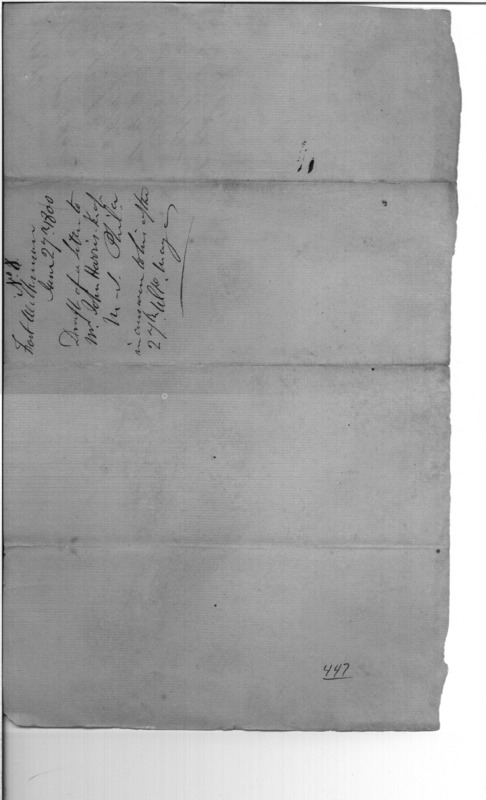 No. 8.
Fort Wilkinson
June 27th 1800
Draft of a letter to
Mr. John Harris K. of
M. S. Phila
in answer to his of the
27th Ulto May
447